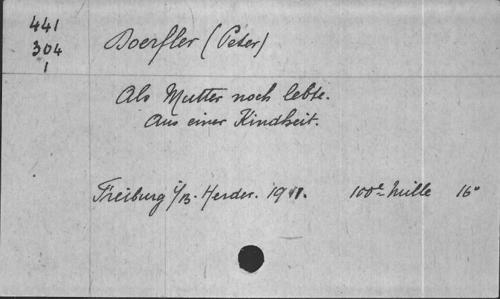 441
304
1
Doerfler (Peter)
Als Mutter noch lebte.
Aus einer Kindheit.
Freiburg i/B. Herder. 100e mille 16°